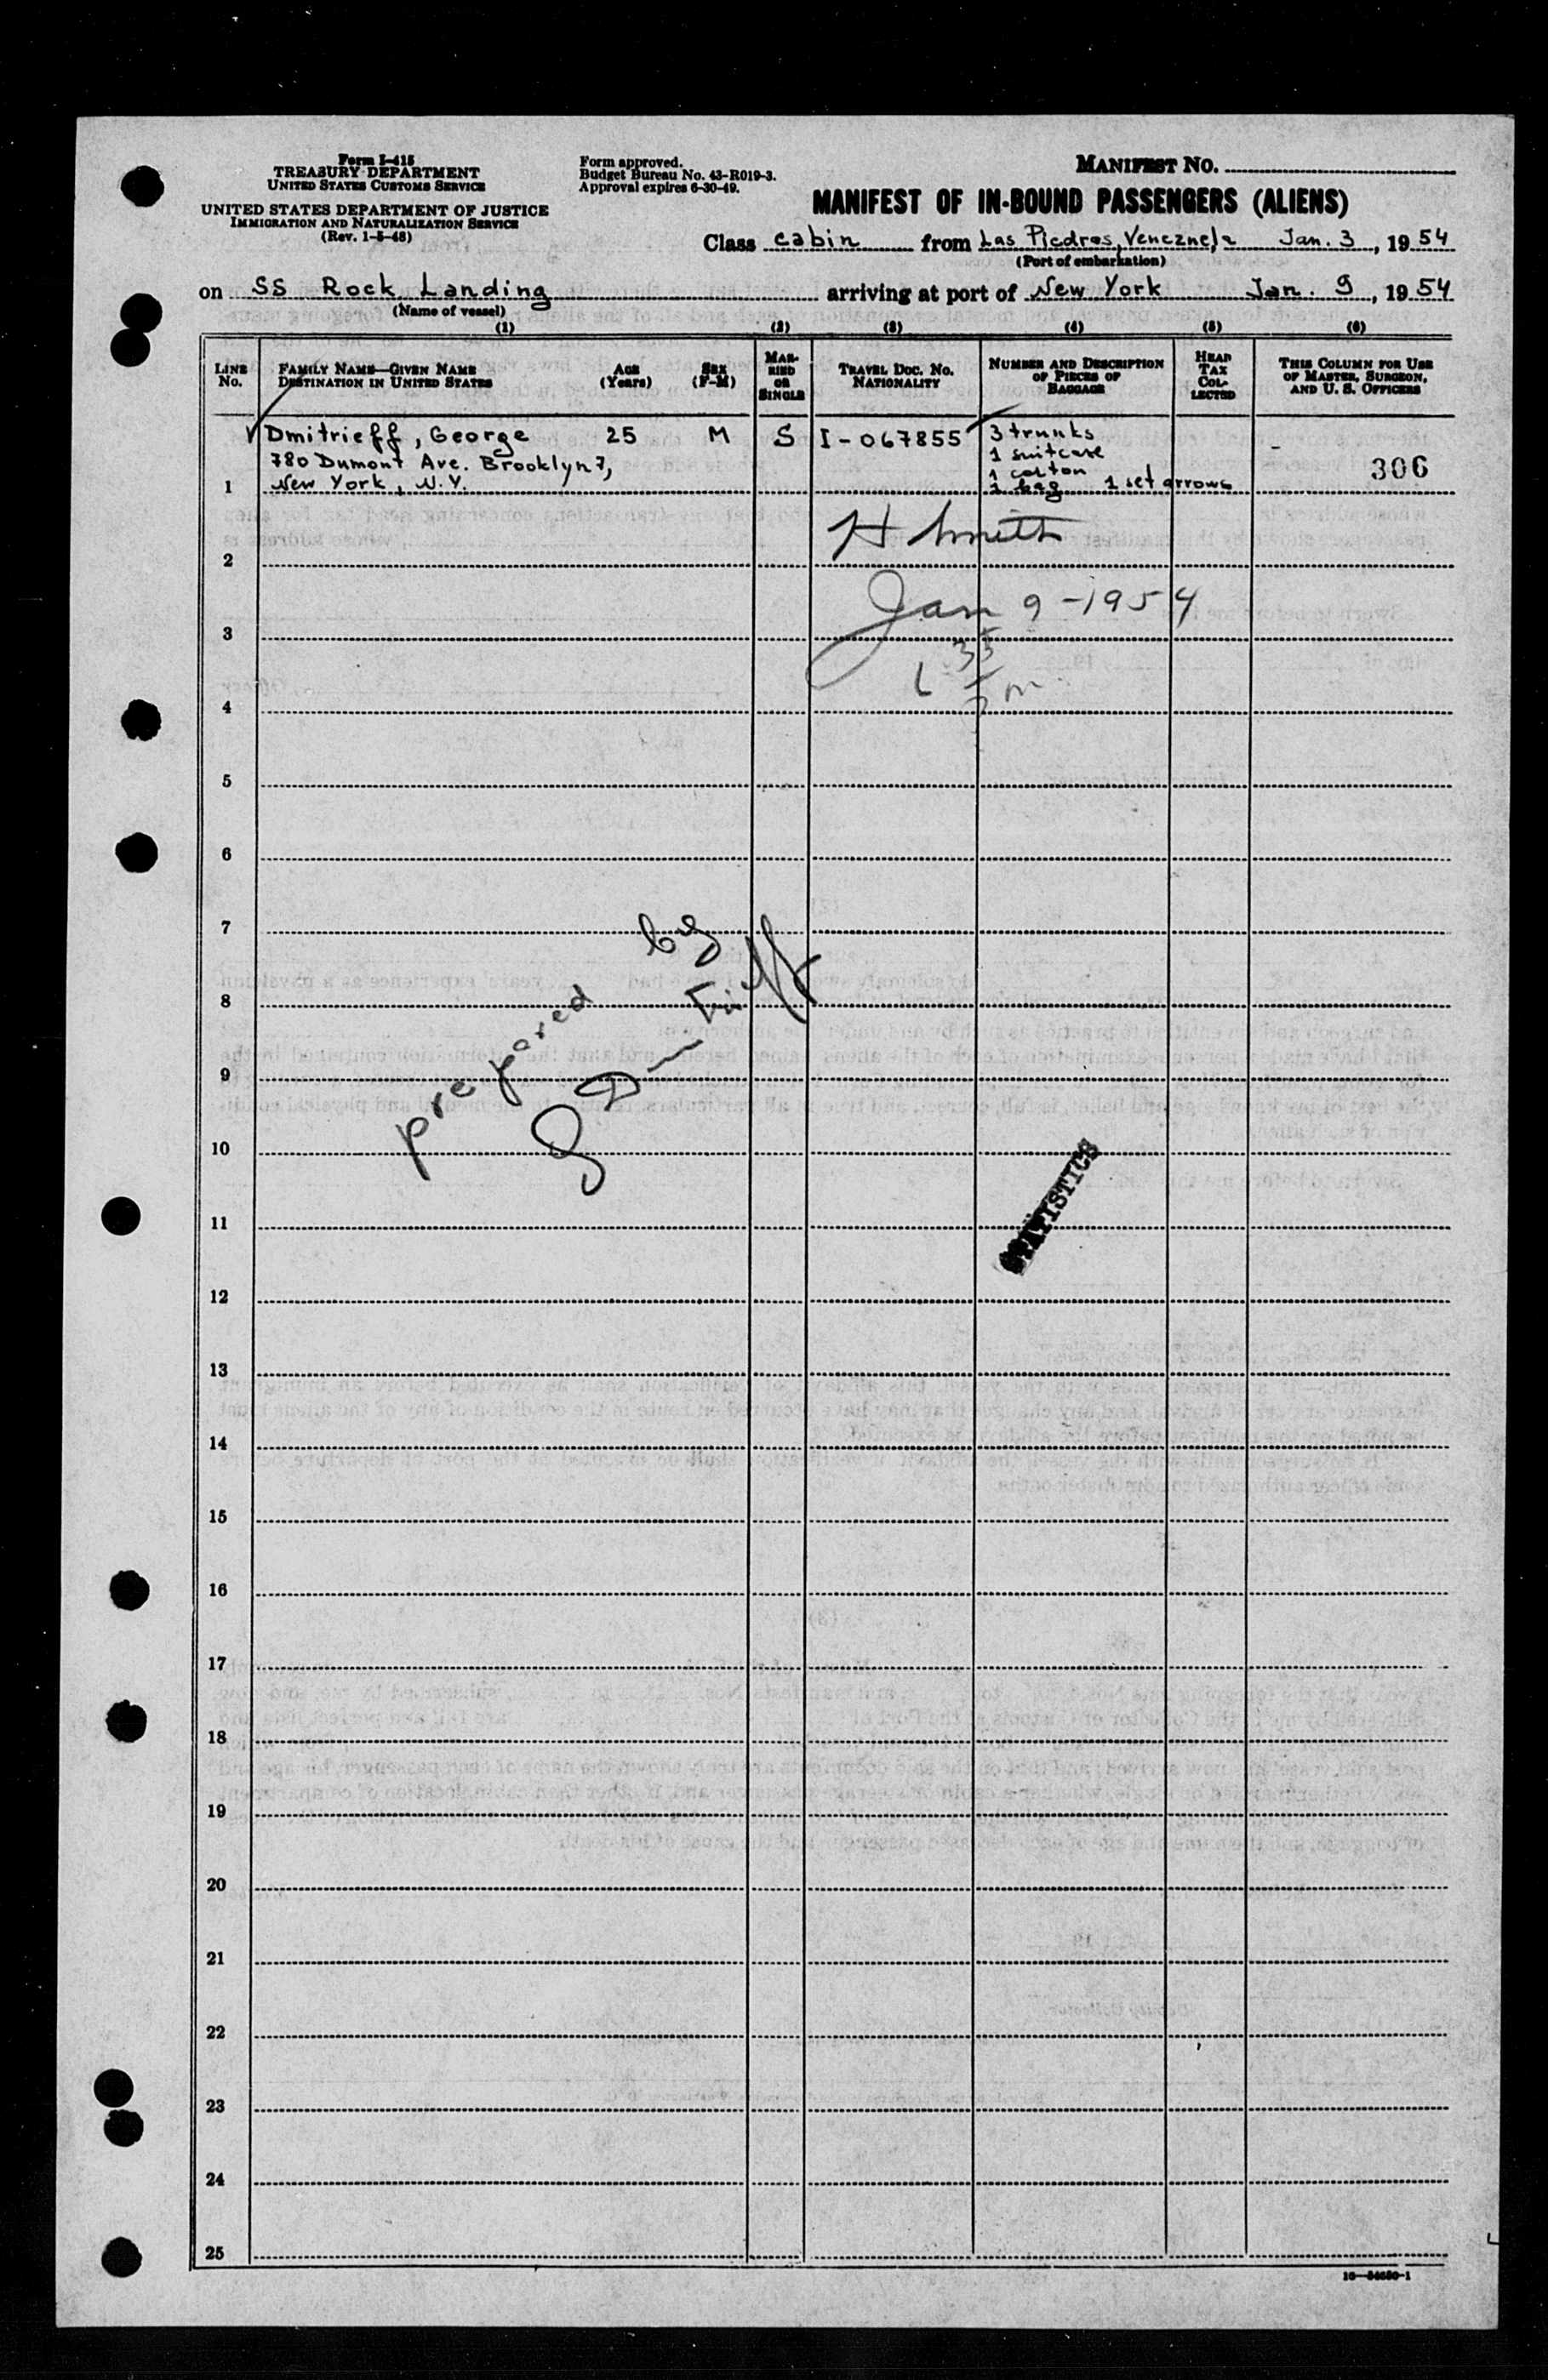 Form I-415
TREASURY DEPARTMENT
UNITED STATES CUSTOMS SERVICE
UNITED STATES DEPARTMENT OF JUSTICE
IMMIGRATION AND NATURALIZATION SERVICE
(Rev. 1-5-48)
Form approved.
Budget Bureau No. 43-R019-3.
Approval expires 6-30-49.
MANIFEST NO.
MANIFEST OF IN-BOUND PASSENGERS (ALIENS)
Class cabin from Las Piedras, Venezuela Jan. 3, 1954
(Port of embarkation)
on SS Rock Landing arriving at port of New York Jan. 9, 1954
(Name of vessel)
(1) (2) (3) (4) (5) (6)
LINE No.
FAMILY NAME—GIVEN NAME
DESTINATION IN UNITED STATES
AGE (Years)
SEX (F-M)
MARRIED OR SINGLE
TRAVEL DOC. NO. NATIONALITY
NUMBER AND DESCRIPTION OF PIECES OF BAGGAGE
HEAD TAX COLLECTED
THIS COLUMN FOR USE OF MASTER, SURGEON, AND U. S. OFFICERS
Dmitrieff, George 25 M S I-067855 3 trunks
780 Dumont Ave. Brooklyn 7, 1 suitcase
1 carton 306
1 New York, N.Y. bag 1 set arrows
H Smith
2
Jan 9-1954
3
4
5
6
7
8
9
10
prepared by
STATISTICS
11
12
13
14
15
16
17
18
19
20
21
22
23
24
25